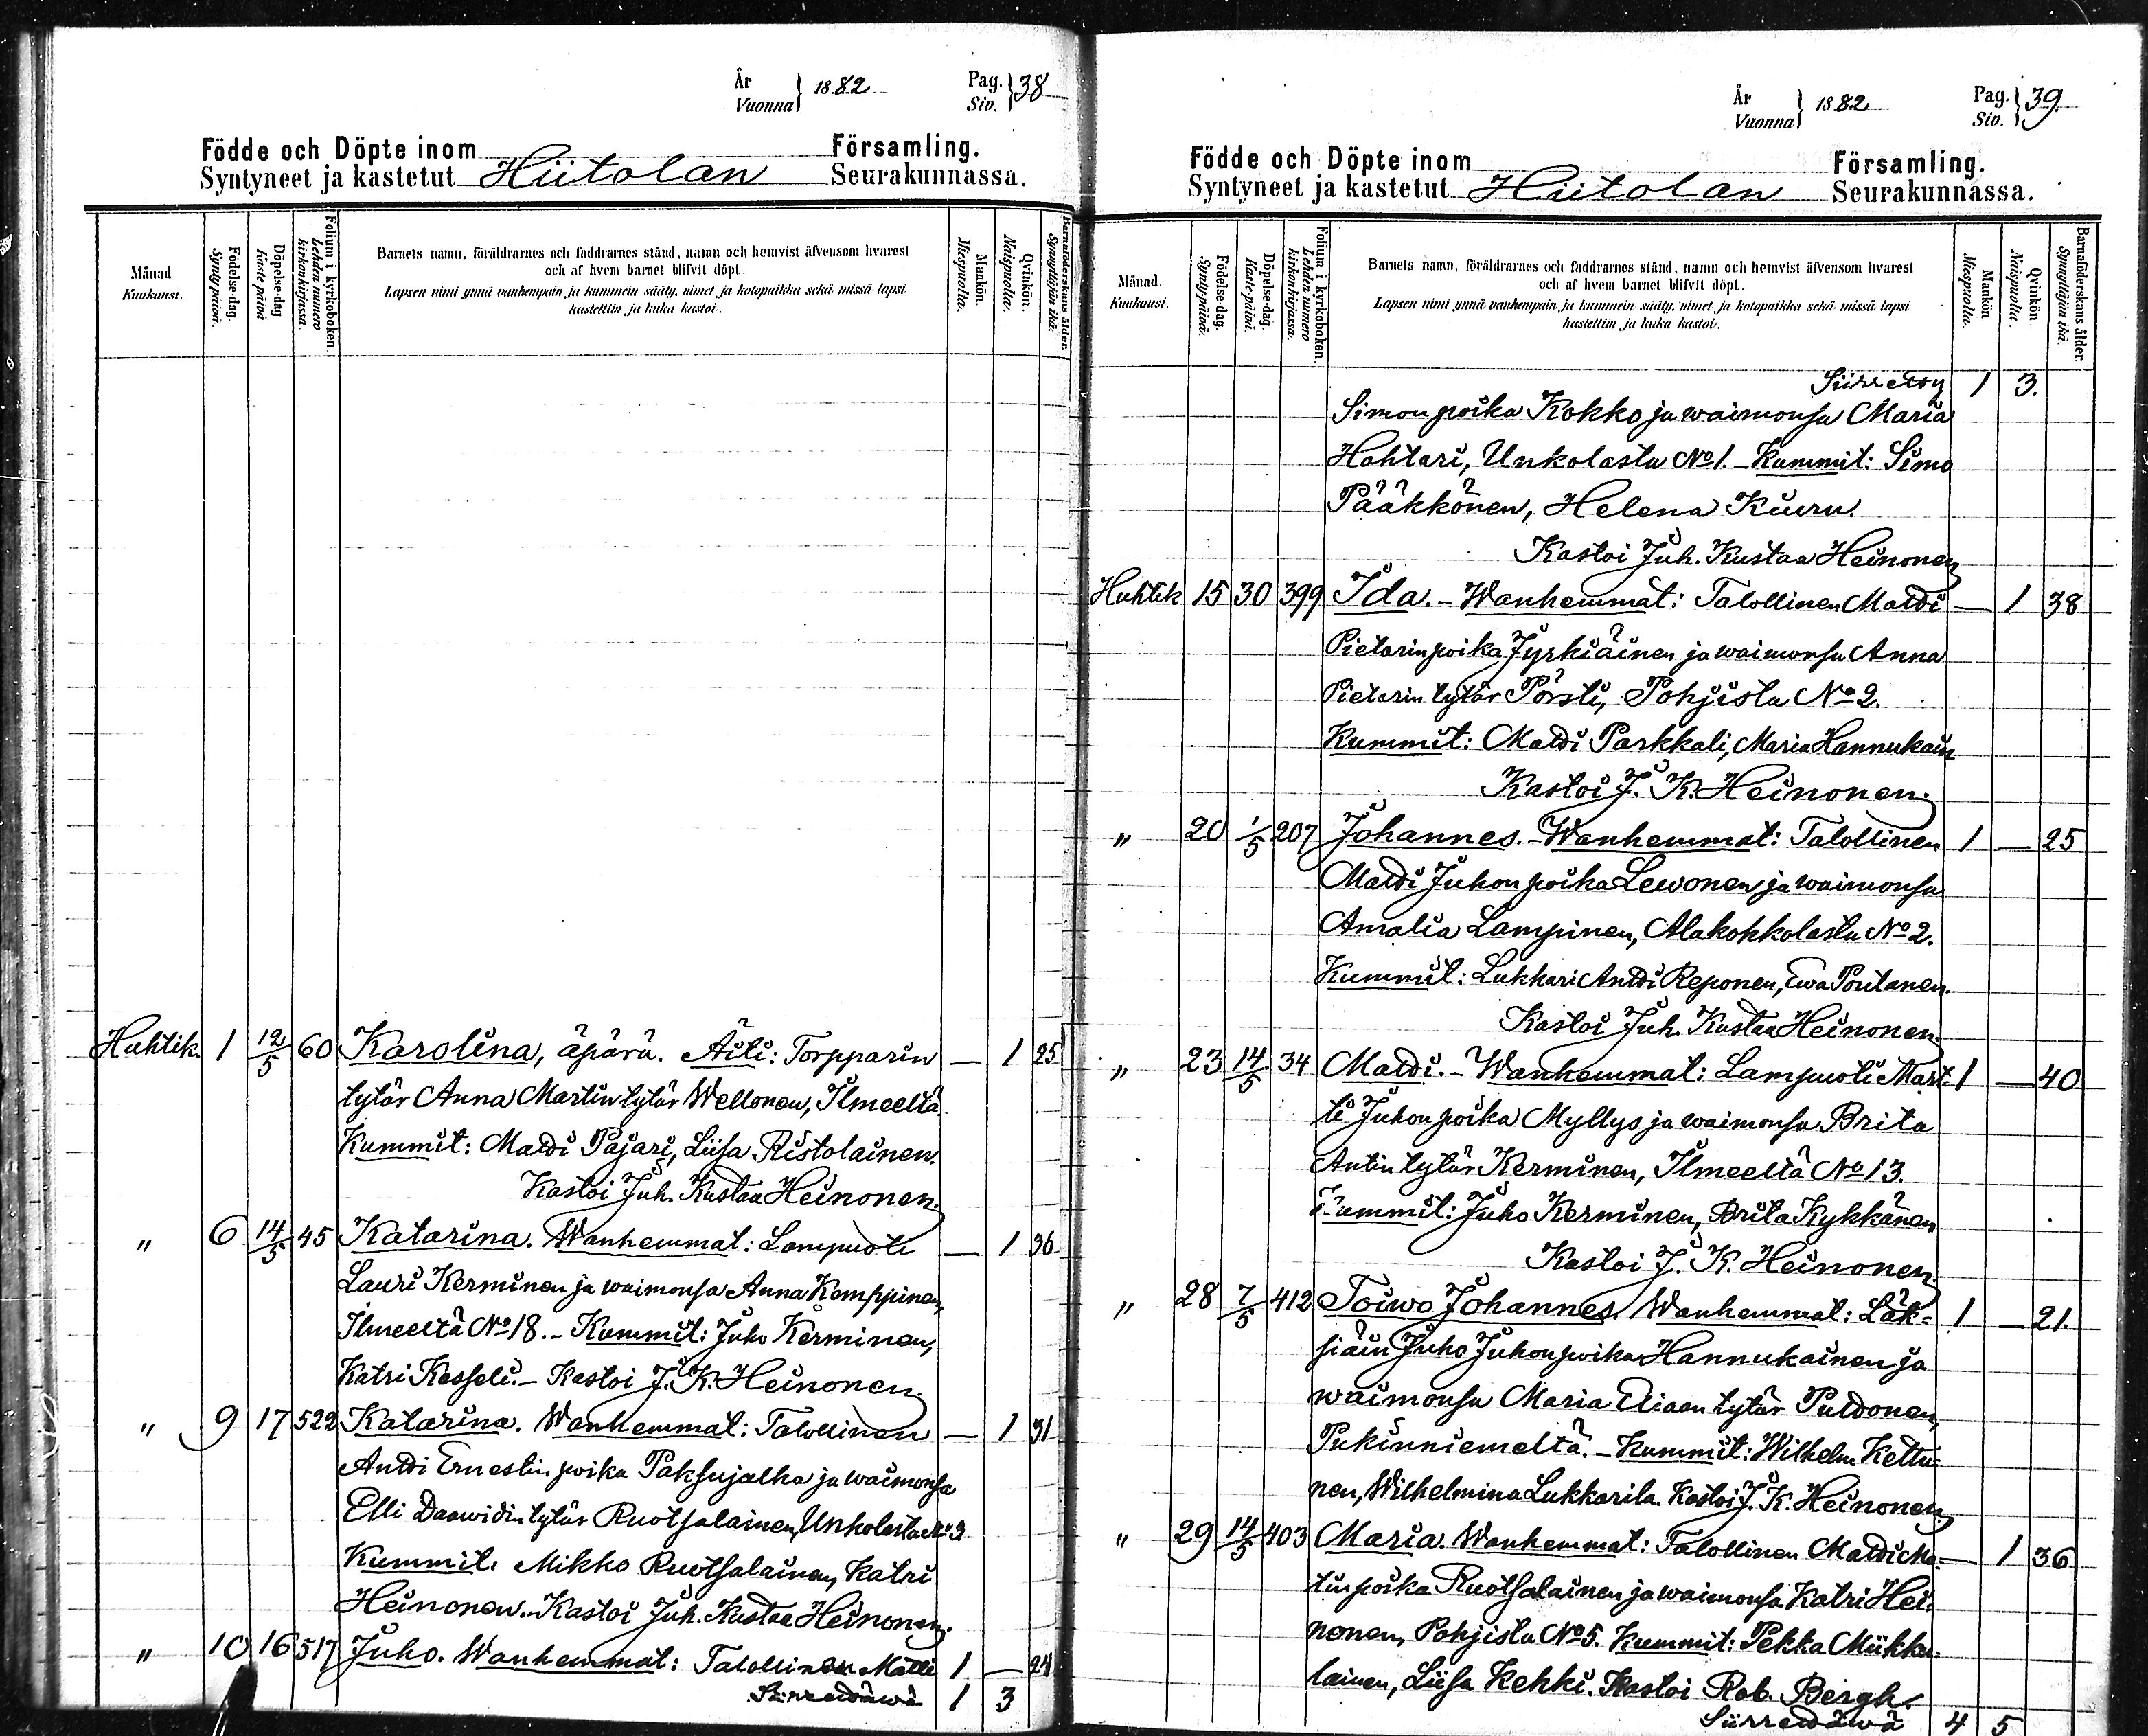 År
Vuonna } 1882
Pag.
Siv. } 38
Födde och Döpte inom Församling.
Syntyneet ja kastetut Hiitolan Seurakunnassa.
Månad
Kuukausi.
Födelse-dag.
Synty-päivä.
Döpelse-dag
Kaste-päivä
Folium i kyrkoboken.
Lehden numero
kirkonkirjassa.
Barnets namn, föräldrarnes och faddrarnes stånd, namn och hemvist äfvensom hvarest
och af hvem barnet blifvit döpt.
Lapsen nimi ynnä vanhempain ja kummein sääty, nimet ja kotopaikka sekä missä lapsi
kastettiin ja kuka kastoi.
Mankön.
Miespuolta.
Qvinkön.
Naispuolta.
Barnaföderskans ålder.
Synnyttäjän ikä.
Huhtik. 1 12/5 60 Karolina, äpärä. Äiti: Torpparin — 1 25
tytär Anna Martin tytär Wellonen, Ilmeeltä
Kummit: Matti Pajari, Liisa Ristolainen.
Kastoi Juh. Kustaa Heinonen.
" 6 14/5 45 Katarina. Wanhemmat: Lampuoti — 1 36
Lauri Kerminen ja waimonsa Anna Kemppinen,
Ilmeeltä No 18. - Kummit: Juho Kerminen,
Katri Kesseli. - Kastoi J. K. Heinonen.
" 9 17 522 Katarina. Wanhemmat: Talollinen — 1 31
Antti Ernestin poika Paksujalka ja waimonsa
Elli Daawidin tytär Ruotsalainen, Unkolasta No 3
Kummit. Mikko Ruotsalainen, Katri
Heinonen. - Kastoi Juh. Kustaa Heinonen.
" 10 16 517 Juho. Wanhemmat: Talollinen Matti 1 — 24
Siirrettäwä 1 3
År
Vuonna } 1882
Pag.
Siv. } 39.
Födde och Döpte inom Församling.
Syntyneet ja kastetut Hiitolan Seurakunnassa.
Månad.
Kuukausi.
Födelse-dag.
Synty-päivä.
Döpelse-dag.
Kaste-päivä.
Folium i kyrkoboken.
Lehden numero
kirkonkirjassa.
Barnets namn, föräldrarnes och faddrarnes stånd, namn och hemvist äfvensom hvarest
och af hvem barnet blifvit döpt.
Lapsen nimi ynnä vanhempain ja kummein sääty, nimet ja kotopaikka sekä missä lapsi
kastettiin ja kuka kastoi.
Mankön
Miespuolta.
Qvinkön.
Naispuolta.
Barnaföderskans ålder.
Synnyttäjän ikä.
Siirretty 1 3.
Simon poika Kokko ja waimonsa Maria
Hohtari, Unkolasta No 1. - Kummit: Simo
Pääkkönen, Helena Kiuru.
Kastoi Juh. Kustaa Heinonen
Huhtik 15 30 399 Ida. - Wanhemmat: Talollinen Matti — 1 38
Pietarin poika Jyrkiäinen ja waimonsa Anna
Pietarin tytär Pörsti, Pohjista No 2.
Kummit: Matti Parkkali, Maria Hannukain
Kastoi J. K. Heinonen.
" 20 1/5 207 Johannes. - Wanhemmat: Talollinen 1 — 25
Matti Juhon poika Lewonen ja waimonsa
Amalia Lampinen, Alakohkolasta No 2.
Kummit: Lukkari Antti Reponen, Ewa Poutanen.
Kastoi Juh. Kustaa Heinonen.
" 23 14/5 34 Matti. - Wanhemmat: Lampuoti Mart- 1 — 40
ti Juhon poika Myllys ja waimonsa Brita
Antin tytär Kerminen, Ilmeeltä No 13.
Kummit: Juho Kerminen, Brita Kykkänen
Kastoi J. K. Heinonen.
" 28 7/5 412 Toiwo Johannes. Wanhemmat: Läk- 1 — 21.
siäin Juho Juhon poika Hannukainen ja
waimonsa Maria Aiaan tytär Puttonen,
Pukinniemeltä. - Kummit: Wilhelm Kettu-
nen, Wilhelmina Lukkarila. Kastoi J. K. Heinonen.
" 29 14/5 403 Maria. Wanhemmat: Talollinen Matti Ma- — 1 36
tin poika Ruotsalainen ja waimonsa Katri Hei-
nonen, Pohjista No 5. Kummit: Pekka Miikku-
lainen, Liisa Kehki. Kastoi Rob. Bergh.
Siirrettäwä 4 5